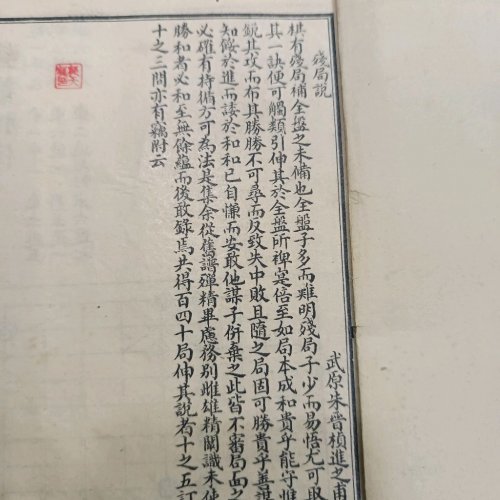 殘局說
武原朱晉楨進之甫
棋有殘局補全盤之未備也全盤子多而難明殘局子少而易悟尤可取
其一訣便可觸類引伸其於全盤所裨寔倍至如局本成和貴乎能守惟
銳其攻而布其勝勝不可尋而反致失中敗且隨之局固可勝貴乎善謀
知餒於進而諉於和和已自慊而安敢他謀子併棄之此皆不審局面之
必確有持循方可為法是集余從舊譜殫精畢慮務別雌雄精關識未使
勝和者必和至無餘蘊而後敢錄焉共得百四十局伸其說者十之五訂
十之三間亦有竊附云